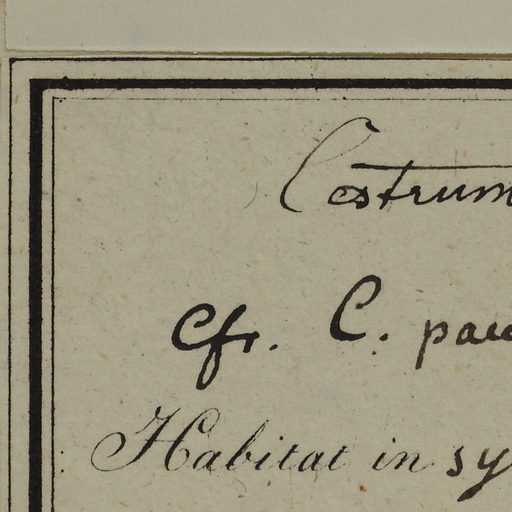 Cestrum
Cfr. C. pau
Habitat in sy